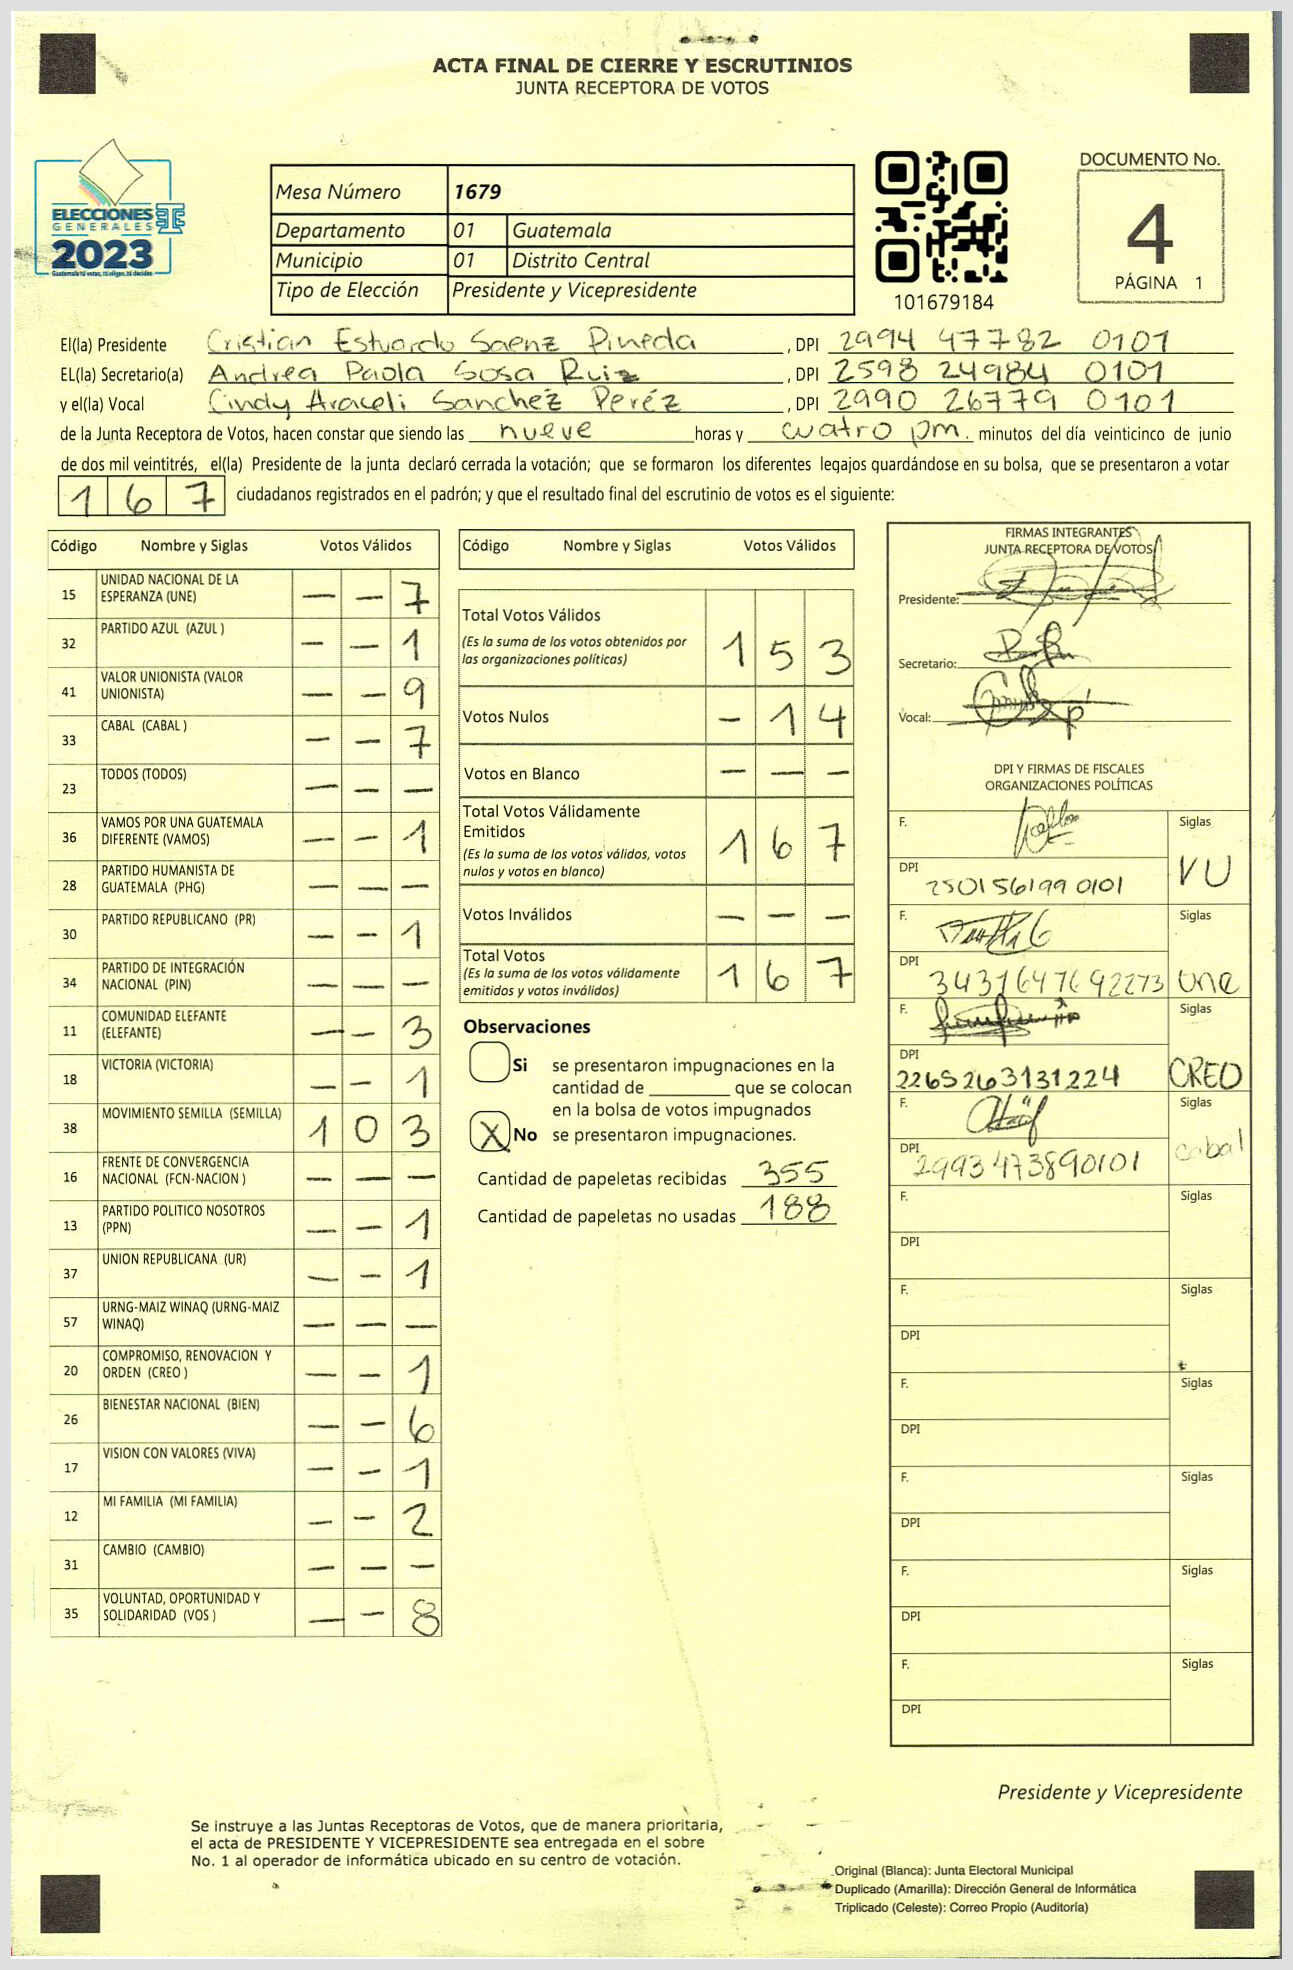 ACTA FINAL DE CIERRE Y ESCRUTINIOS
JUNTA RECEPTORA DE VOTOS
ELECCIONES
GENERALES
2023
Guatemala tú votas, tú eliges, tú decides
Mesa Número 1679
Departamento 01 Guatemala
Municipio 01 Distrito Central
Tipo de Elección Presidente y Vicepresidente
101679184
DOCUMENTO No.
4
PÁGINA 1
El(la) Presidente Cristian Estuardo Saenz Pineda, DPI 2994 47782 0101
EL(la) Secretario(a) Andrea Paola Sosa Ruiz, DPI 2598 24984 0101
y el(la) Vocal Cindy Araceli Sanchéz Peréz, DPI 2990 26779 0101
de la Junta Receptora de Votos, hacen constar que siendo las nueve horas y cuatro pm. minutos del día veinticinco de junio
de dos mil veintitrés, el(la) Presidente de la junta declaró cerrada la votación; que se formaron los diferentes legajos guardándose en su bolsa, que se presentaron a votar
167 ciudadanos registrados en el padrón; y que el resultado final del escrutinio de votos es el siguiente:
Código Nombre y Siglas Votos Válidos
15 UNIDAD NACIONAL DE LA ESPERANZA (UNE) — — 7
32 PARTIDO AZUL (AZUL ) — — 1
41 VALOR UNIONISTA (VALOR UNIONISTA) — — 9
33 CABAL (CABAL ) — — 7
23 TODOS (TODOS) — — —
36 VAMOS POR UNA GUATEMALA DIFERENTE (VAMOS) — — 1
28 PARTIDO HUMANISTA DE GUATEMALA (PHG) — — —
30 PARTIDO REPUBLICANO (PR) — — 1
34 PARTIDO DE INTEGRACIÓN NACIONAL (PIN) — — —
11 COMUNIDAD ELEFANTE (ELEFANTE) — — 3
18 VICTORIA (VICTORIA) — — 1
38 MOVIMIENTO SEMILLA (SEMILLA) 1 0 3
16 FRENTE DE CONVERGENCIA NACIONAL (FCN-NACION ) — — —
13 PARTIDO POLITICO NOSOTROS (PPN) — — 1
37 UNION REPUBLICANA (UR) — — 1
57 URNG-MAIZ WINAQ (URNG-MAIZ WINAQ) — — —
20 COMPROMISO, RENOVACION Y ORDEN (CREO ) — — 1
26 BIENESTAR NACIONAL (BIEN) — — 6
17 VISION CON VALORES (VIVA) — — 1
12 MI FAMILIA (MI FAMILIA) — — 2
31 CAMBIO (CAMBIO) — — —
35 VOLUNTAD, OPORTUNIDAD Y SOLIDARIDAD (VOS ) — — 8
Código Nombre y Siglas Votos Válidos
Total Votos Válidos
(Es la suma de los votos obtenidos por
las organizaciones políticas) 1 5 3
Votos Nulos — 1 4
Votos en Blanco — — —
Total Votos Válidamente
Emitidos
(Es la suma de los votos válidos, votos
nulos y votos en blanco) 1 6 7
Votos Inválidos — — —
Total Votos
(Es la suma de los votos válidamente
emitidos y votos inválidos) 1 6 7
Observaciones
Si se presentaron impugnaciones en la
cantidad de ________ que se colocan
en la bolsa de votos impugnados
X No se presentaron impugnaciones.
Cantidad de papeletas recibidas 355
Cantidad de papeletas no usadas 188
FIRMAS INTEGRANTES
JUNTA RECEPTORA DE VOTOS
Presidente:
Secretario:
Vocal:
DPI Y FIRMAS DE FISCALES
ORGANIZACIONES POLÍTICAS
F. Siglas
DPI 250156199 0101 VU
F. Siglas
DPI 3431647692273 une
F. Siglas
DPI 2265263131224 CREO
F. Siglas
DPI 2993473890101 cabal
F. Siglas
DPI
F. Siglas
DPI
F. Siglas
DPI
F. Siglas
DPI
F. Siglas
DPI
F. Siglas
DPI
Presidente y Vicepresidente
Se instruye a las Juntas Receptoras de Votos, que de manera prioritaria,
el acta de PRESIDENTE Y VICEPRESIDENTE sea entregada en el sobre
No. 1 al operador de informática ubicado en su centro de votación.
Original (Blanca): Junta Electoral Municipal
Duplicado (Amarilla): Dirección General de Informática
Triplicado (Celeste): Correo Propio (Auditoría)